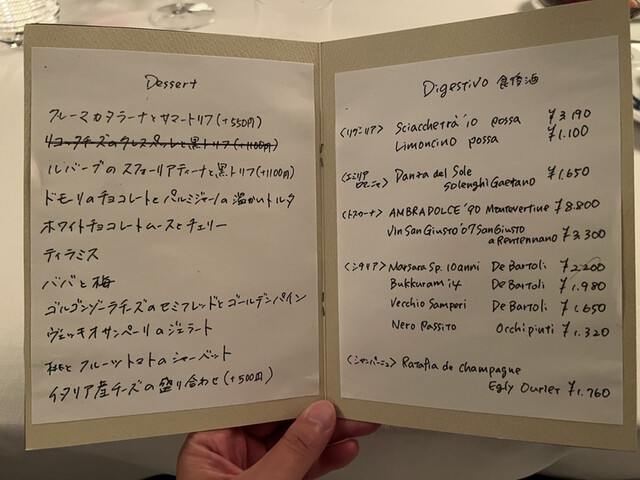 Dessert
クレーマカタラーナとサマートリフ(+550円)
リコッタチーズのクレスペッレと黒トリフ(+1100円)
ルバーブのスフォリアティーナと黒トリフ(+1100円)
ドモリのチョコレートとパルミジャーノの温かいトルタ
ホワイトチョコレートムースとチェリー
ティラミス
ババと梅
ゴルゴンゾーラチーズのセミフレッドとゴールデンパイン
ヴェッキオサンペーリのジェラート
桃とフルーツトマトのシャーベット
イタリア産チーズの盛り合わせ(+500円)
Digestivo 食後酒
<リグーリア> Sciacchetrà '10 possa ¥3.190
Limoncino possa ¥1.100
<エミリアロマーニャ> Danza del Sole ¥1.650
Solenghi Gaetano
<トスカーナ> AMBRADOLCE '90 Montevertine ¥8.800
Vin San Giusto '07 San Giusto
a Rentennano ¥3.300
<シチリア> Marsara Sp. 10anni De Bartoli ¥2.200
Bukkuram i4 De Bartoli ¥1.980
Vecchio Samperi De Bartoli ¥1.650
Nero Passito Occhipinti ¥1.320
<シャンパーニュ> Ratafia de champagne
Egly Ouriet ¥1.760